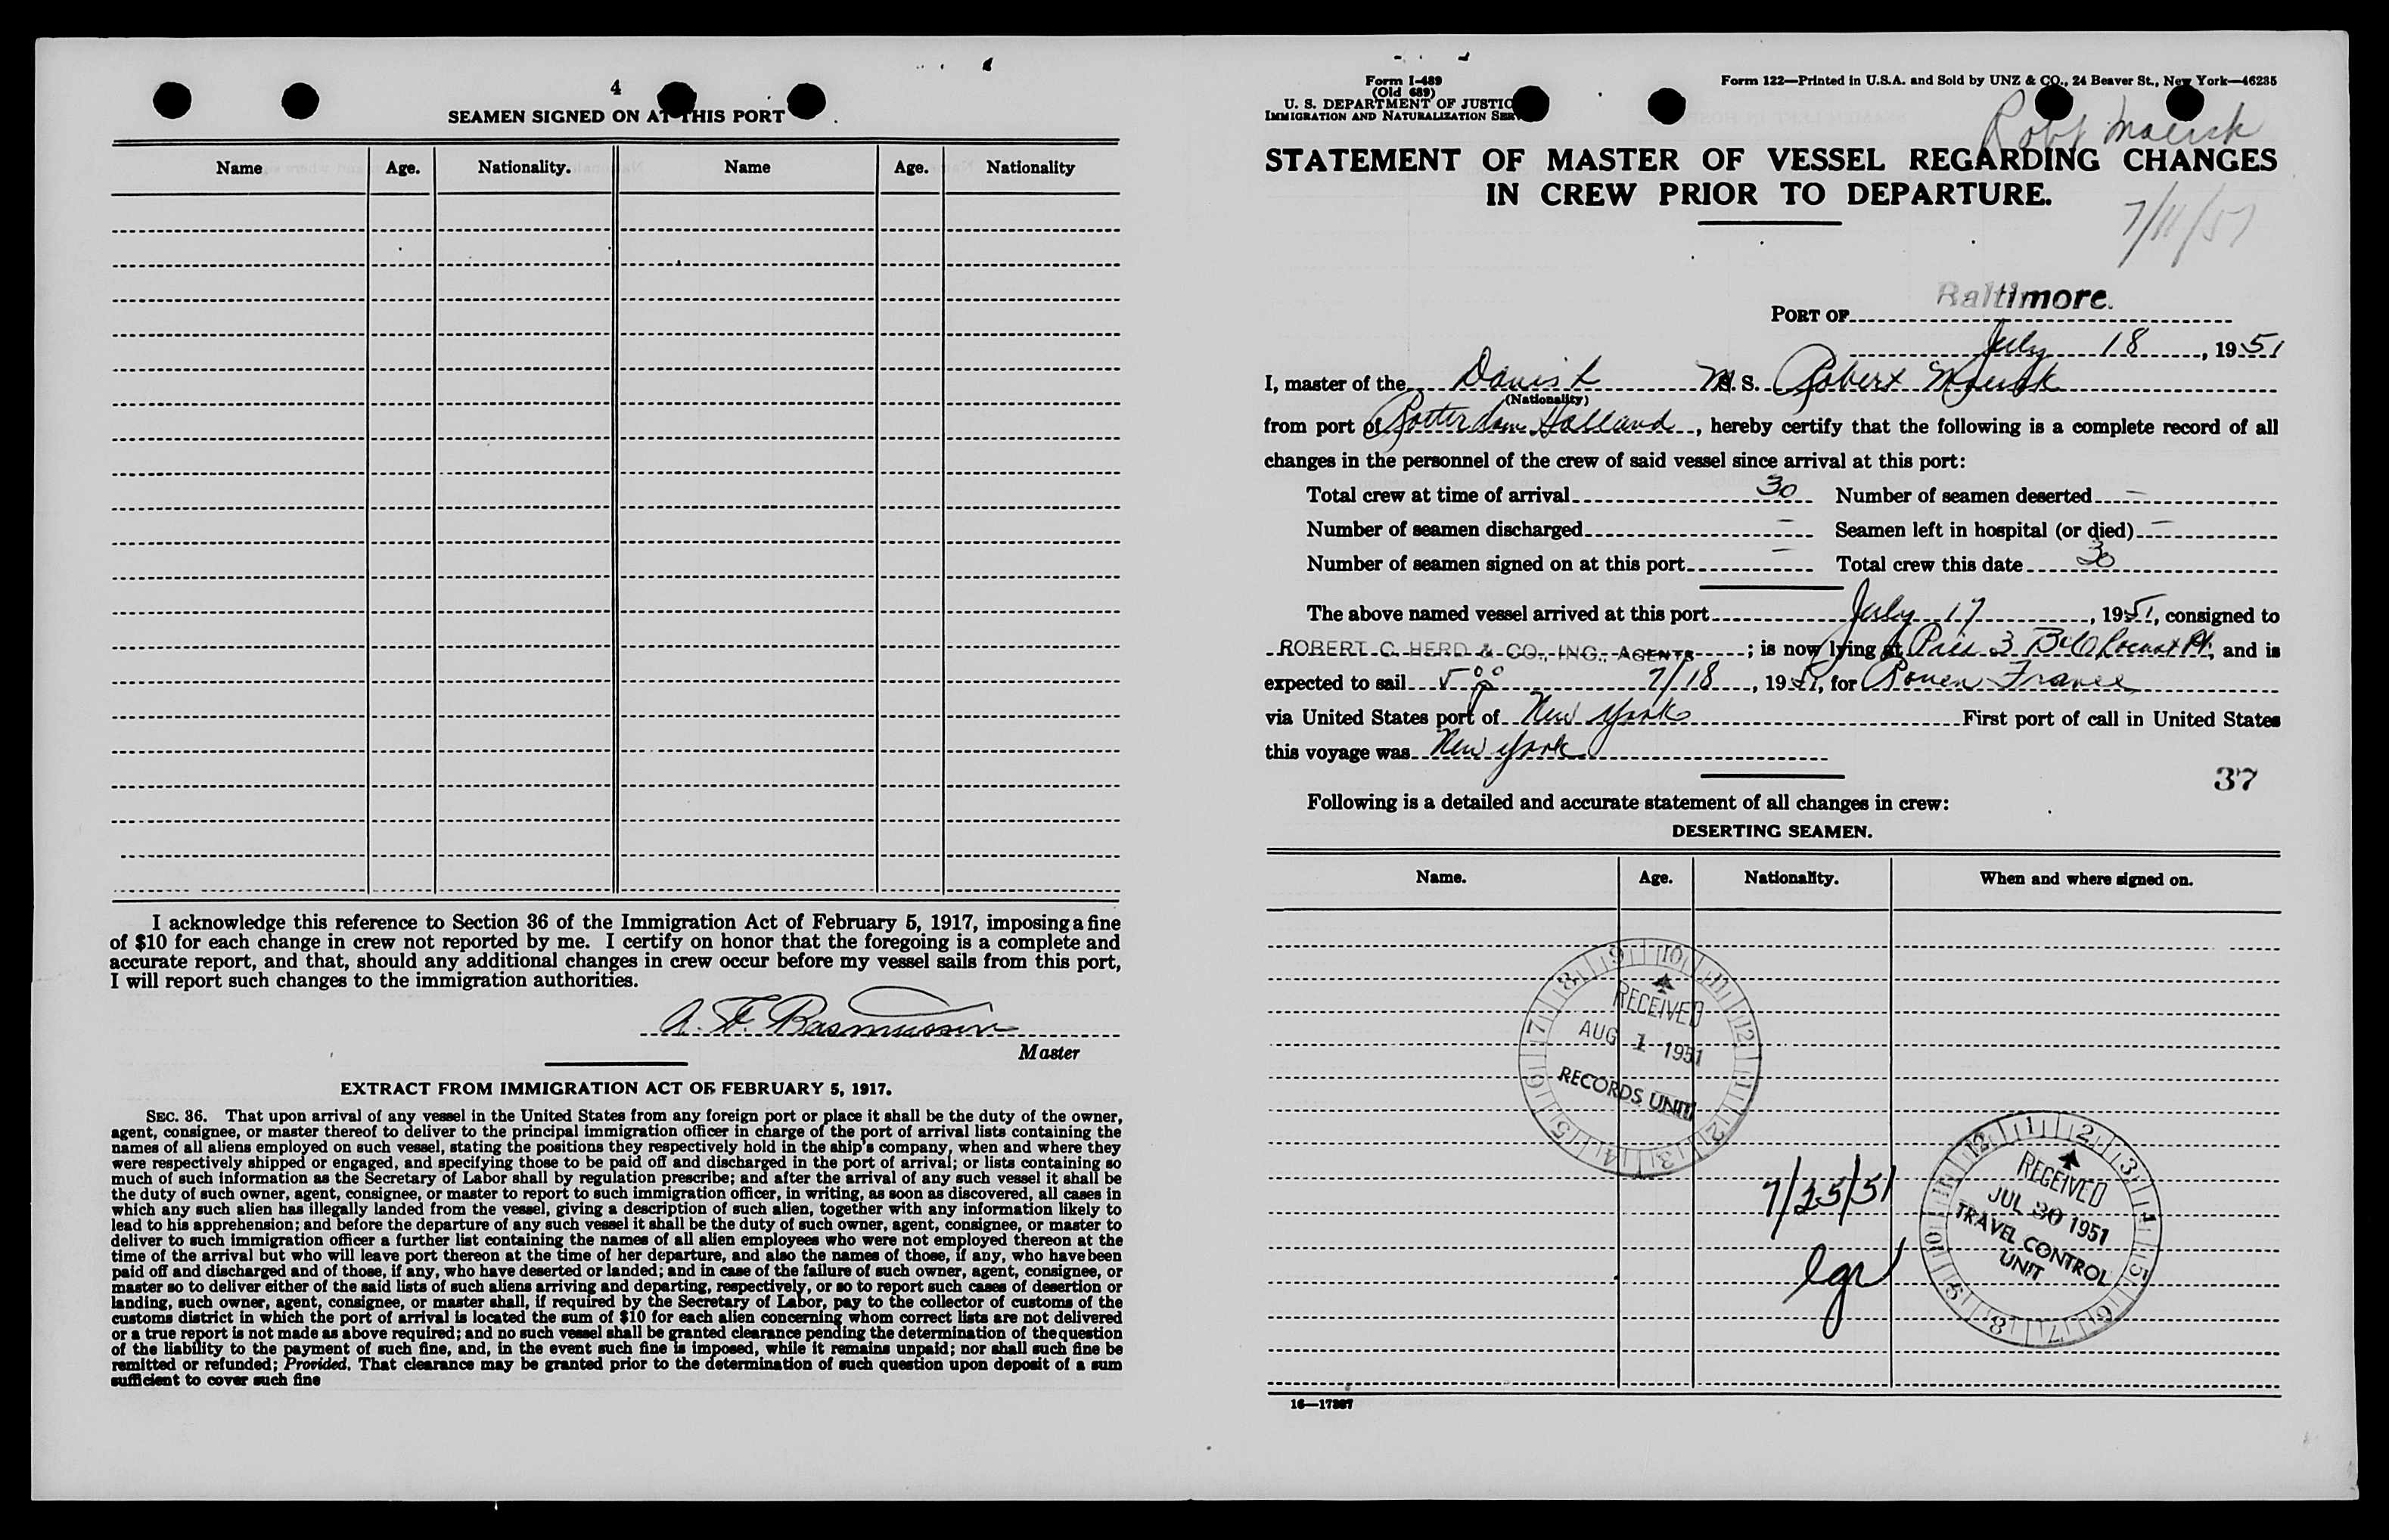 4
SEAMEN SIGNED ON AT THIS PORT
Name Age. Nationality. Name Age. Nationality
I acknowledge this reference to Section 36 of the Immigration Act of February 5, 1917, imposing a fine
of $10 for each change in crew not reported by me. I certify on honor that the foregoing is a complete and
accurate report, and that, should any additional changes in crew occur before my vessel sails from this port,
I will report such changes to the immigration authorities.
A. F. Rasmussen
Master
EXTRACT FROM IMMIGRATION ACT OF FEBRUARY 5, 1917.
SEC. 36. That upon arrival of any vessel in the United States from any foreign port or place it shall be the duty of the owner,
agent, consignee, or master thereof to deliver to the principal immigration officer in charge of the port of arrival lists containing the
names of all aliens employed on such vessel, stating the positions they respectively hold in the ship's company, when and where they
were respectively shipped or engaged, and specifying those to be paid off and discharged in the port of arrival; or lists containing so
much of such information as the Secretary of Labor shall by regulation prescribe; and after the arrival of any such vessel it shall be
the duty of such owner, agent, consignee, or master to report to such immigration officer, in writing, as soon as discovered, all cases in
which any such alien has illegally landed from the vessel, giving a description of such alien, together with any information likely to
lead to his apprehension; and before the departure of any such vessel it shall be the duty of such owner, agent, consignee, or master to
deliver to such immigration officer a further list containing the names of all alien employees who were not employed thereon at the
time of the arrival but who will leave port thereon at the time of her departure, and also the names of those, if any, who have been
paid off and discharged and of those, if any, who have deserted or landed; and in case of the failure of such owner, agent, consignee, or
master so to deliver either of the said lists of such aliens arriving and departing, respectively, or so to report such cases of desertion or
landing, such owner, agent, consignee, or master shall, if required by the Secretary of Labor, pay to the collector of customs of the
customs district in which the port of arrival is located the sum of $10 for each alien concerning whom correct lists are not delivered
or a true report is not made as above required; and no such vessel shall be granted clearance pending the determination of the question
of the liability to the payment of such fine, and, in the event such fine is imposed, while it remains unpaid; nor shall such fine be
remitted or refunded; Provided, That clearance may be granted prior to the determination of such question upon deposit of a sum
sufficient to cover such fine
Form I-489
(Old 689)
U. S. DEPARTMENT OF JUSTIC
IMMIGRATION AND NATURALIZATION SER
Form 122—Printed in U.S.A. and Sold by UNZ & CO., 24 Beaver St., New York—46235
Robt Maersk
STATEMENT OF MASTER OF VESSEL REGARDING CHANGES
IN CREW PRIOR TO DEPARTURE.
7/11/51
PORT OF Baltimore.
July 18, 1951
I, master of the Danish M. S. Robert Maersk
(Nationality)
from port of Rotterdam Holland, hereby certify that the following is a complete record of all
changes in the personnel of the crew of said vessel since arrival at this port:
Total crew at time of arrival 30 Number of seamen deserted –
Number of seamen discharged – Seamen left in hospital (or died) –
Number of seamen signed on at this port – Total crew this date 30
The above named vessel arrived at this port July 17, 1951, consigned to
ROBERT C. HERD & CO., INC., AGENTS; is now lying at Pier 3 B&O Locust Pt, and is
expected to sail 5 00 p 7/18, 1951, for Rouen France
via United States port of New York First port of call in United States
this voyage was New York
37
Following is a detailed and accurate statement of all changes in crew:
DESERTING SEAMEN.
Name. Age. Nationality. When and where signed on.
RECEIVED
AUG 1 1951
RECORDS UNIT
7/25/51
RECEIVED
JUL 30 1951
TRAVEL CONTROL
UNIT
16—17887